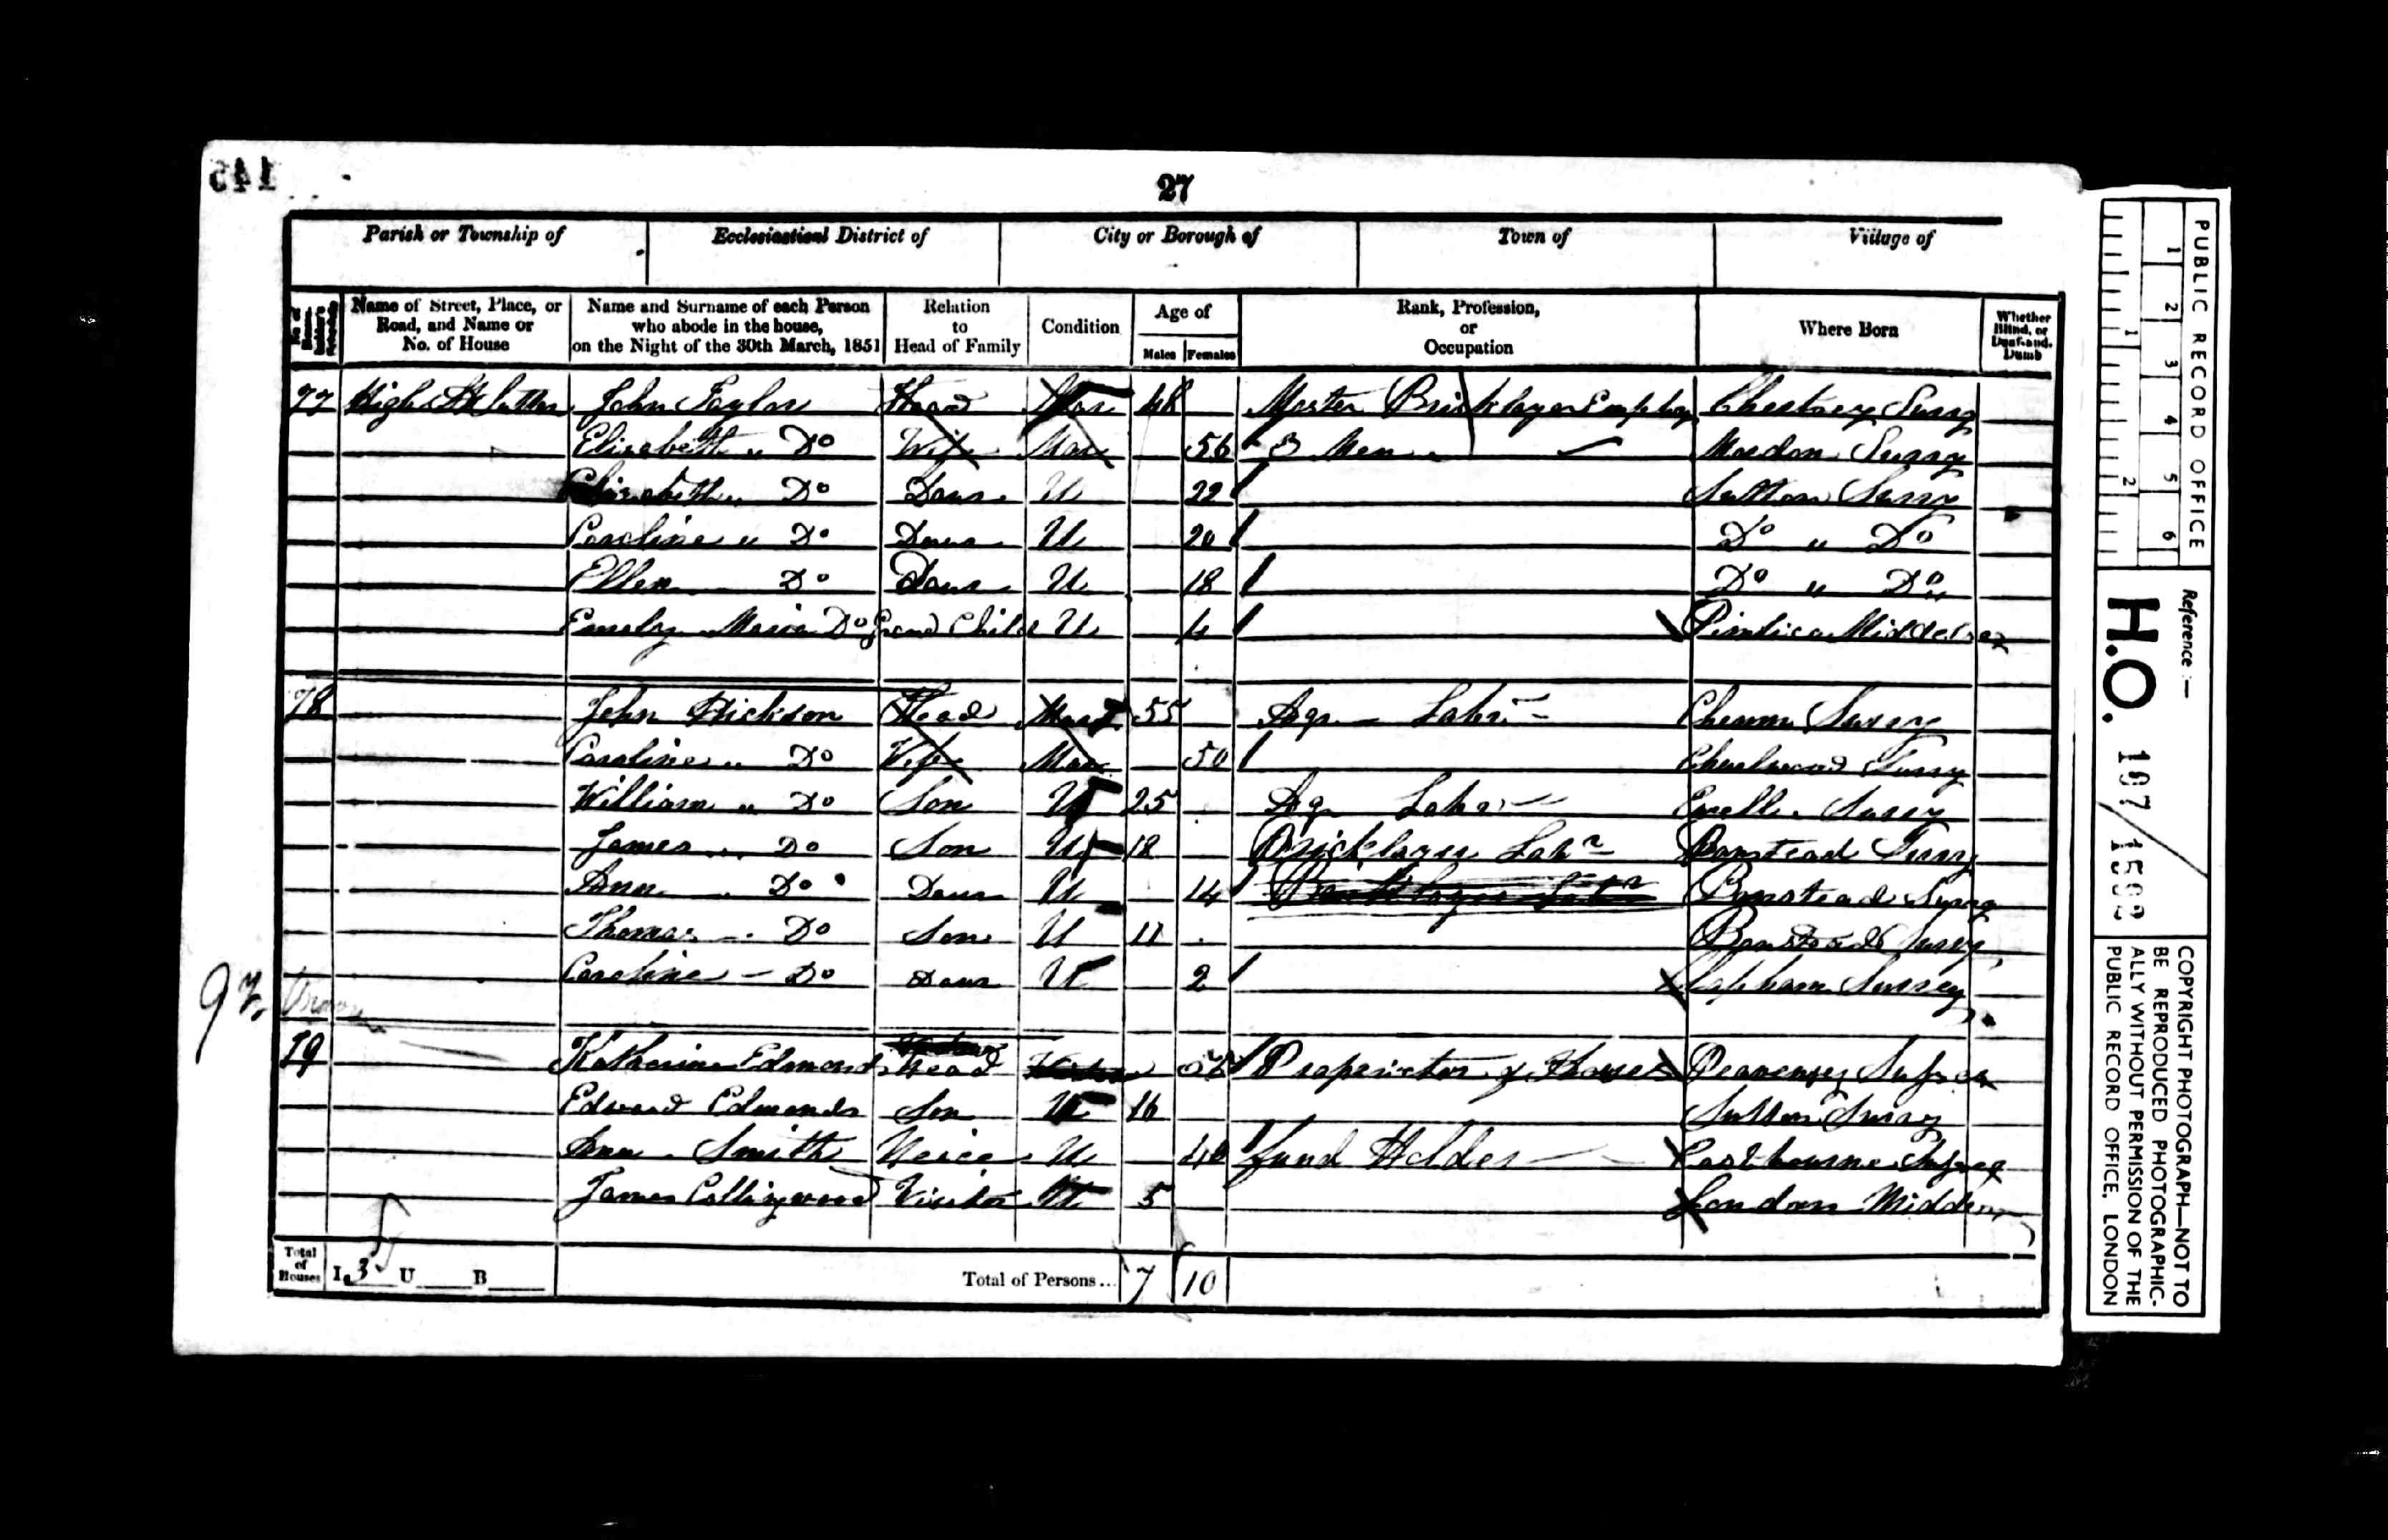 145
27
Parish or Township of Ecclesiastical District of City or Borough of Town of Village of
Name of Street, Place, or Road, and Name or No. of House
Name and Surname of each Person who abode in the house, on the Night of the 30th March, 1851
Relation to Head of Family
Condition
Age of
Males Females
Rank, Profession, or Occupation
Where Born
Whether Blind, or Deaf-and-Dumb
77 High St Sutton John Taylor Head Mar 48 Master Bricklayer Employ Surry
Elizabeth " Do Wife Mar 56 3 Men Mordon Surry
Elizabeth " Do Daur U 22 Sutton Surry
Caroline " Do Daur U 20 Do " Do
Ellen Do Daur U 18 Do " Do
Emely Maria Do Grand Child U 4 Pimlico Middlesex
78 John Dickson Head Mar 55 Agr Labr Cheam Surry
Caroline " Do Wife Mar 50 Charlwood Surry
William " Do Son U 25 Ag Labr Ewell Surry
James Do Son U 18 Bricklayer Labr Banstead Surry
Ann Do Daur U 14 Bricklayer Labr Banstead Surry
Thomas Do Son U 11 Banstead Surry
Caroline - Do Daur U 2 Clapham Surrey
79 Katherine Edmonds Head Proprietor of Houses Pevensey Sussex
Edward Edmonds Son U 16 Sutton Surry
Ann Smith Neice U 40 Fund Holder Eastbourne Sussex
James Collingwood Visitor U 5 London Middx
Total of Houses I 3 U B Total of Persons... 7 10
PUBLIC RECORD OFFICE
1 2 3 4 5 6
1 2
Reference :—
H.O. 107/1599
COPYRIGHT PHOTOGRAPH—NOT TO
BE REPRODUCED PHOTOGRAPHIC-
ALLY WITHOUT PERMISSION OF THE
PUBLIC RECORD OFFICE, LONDON